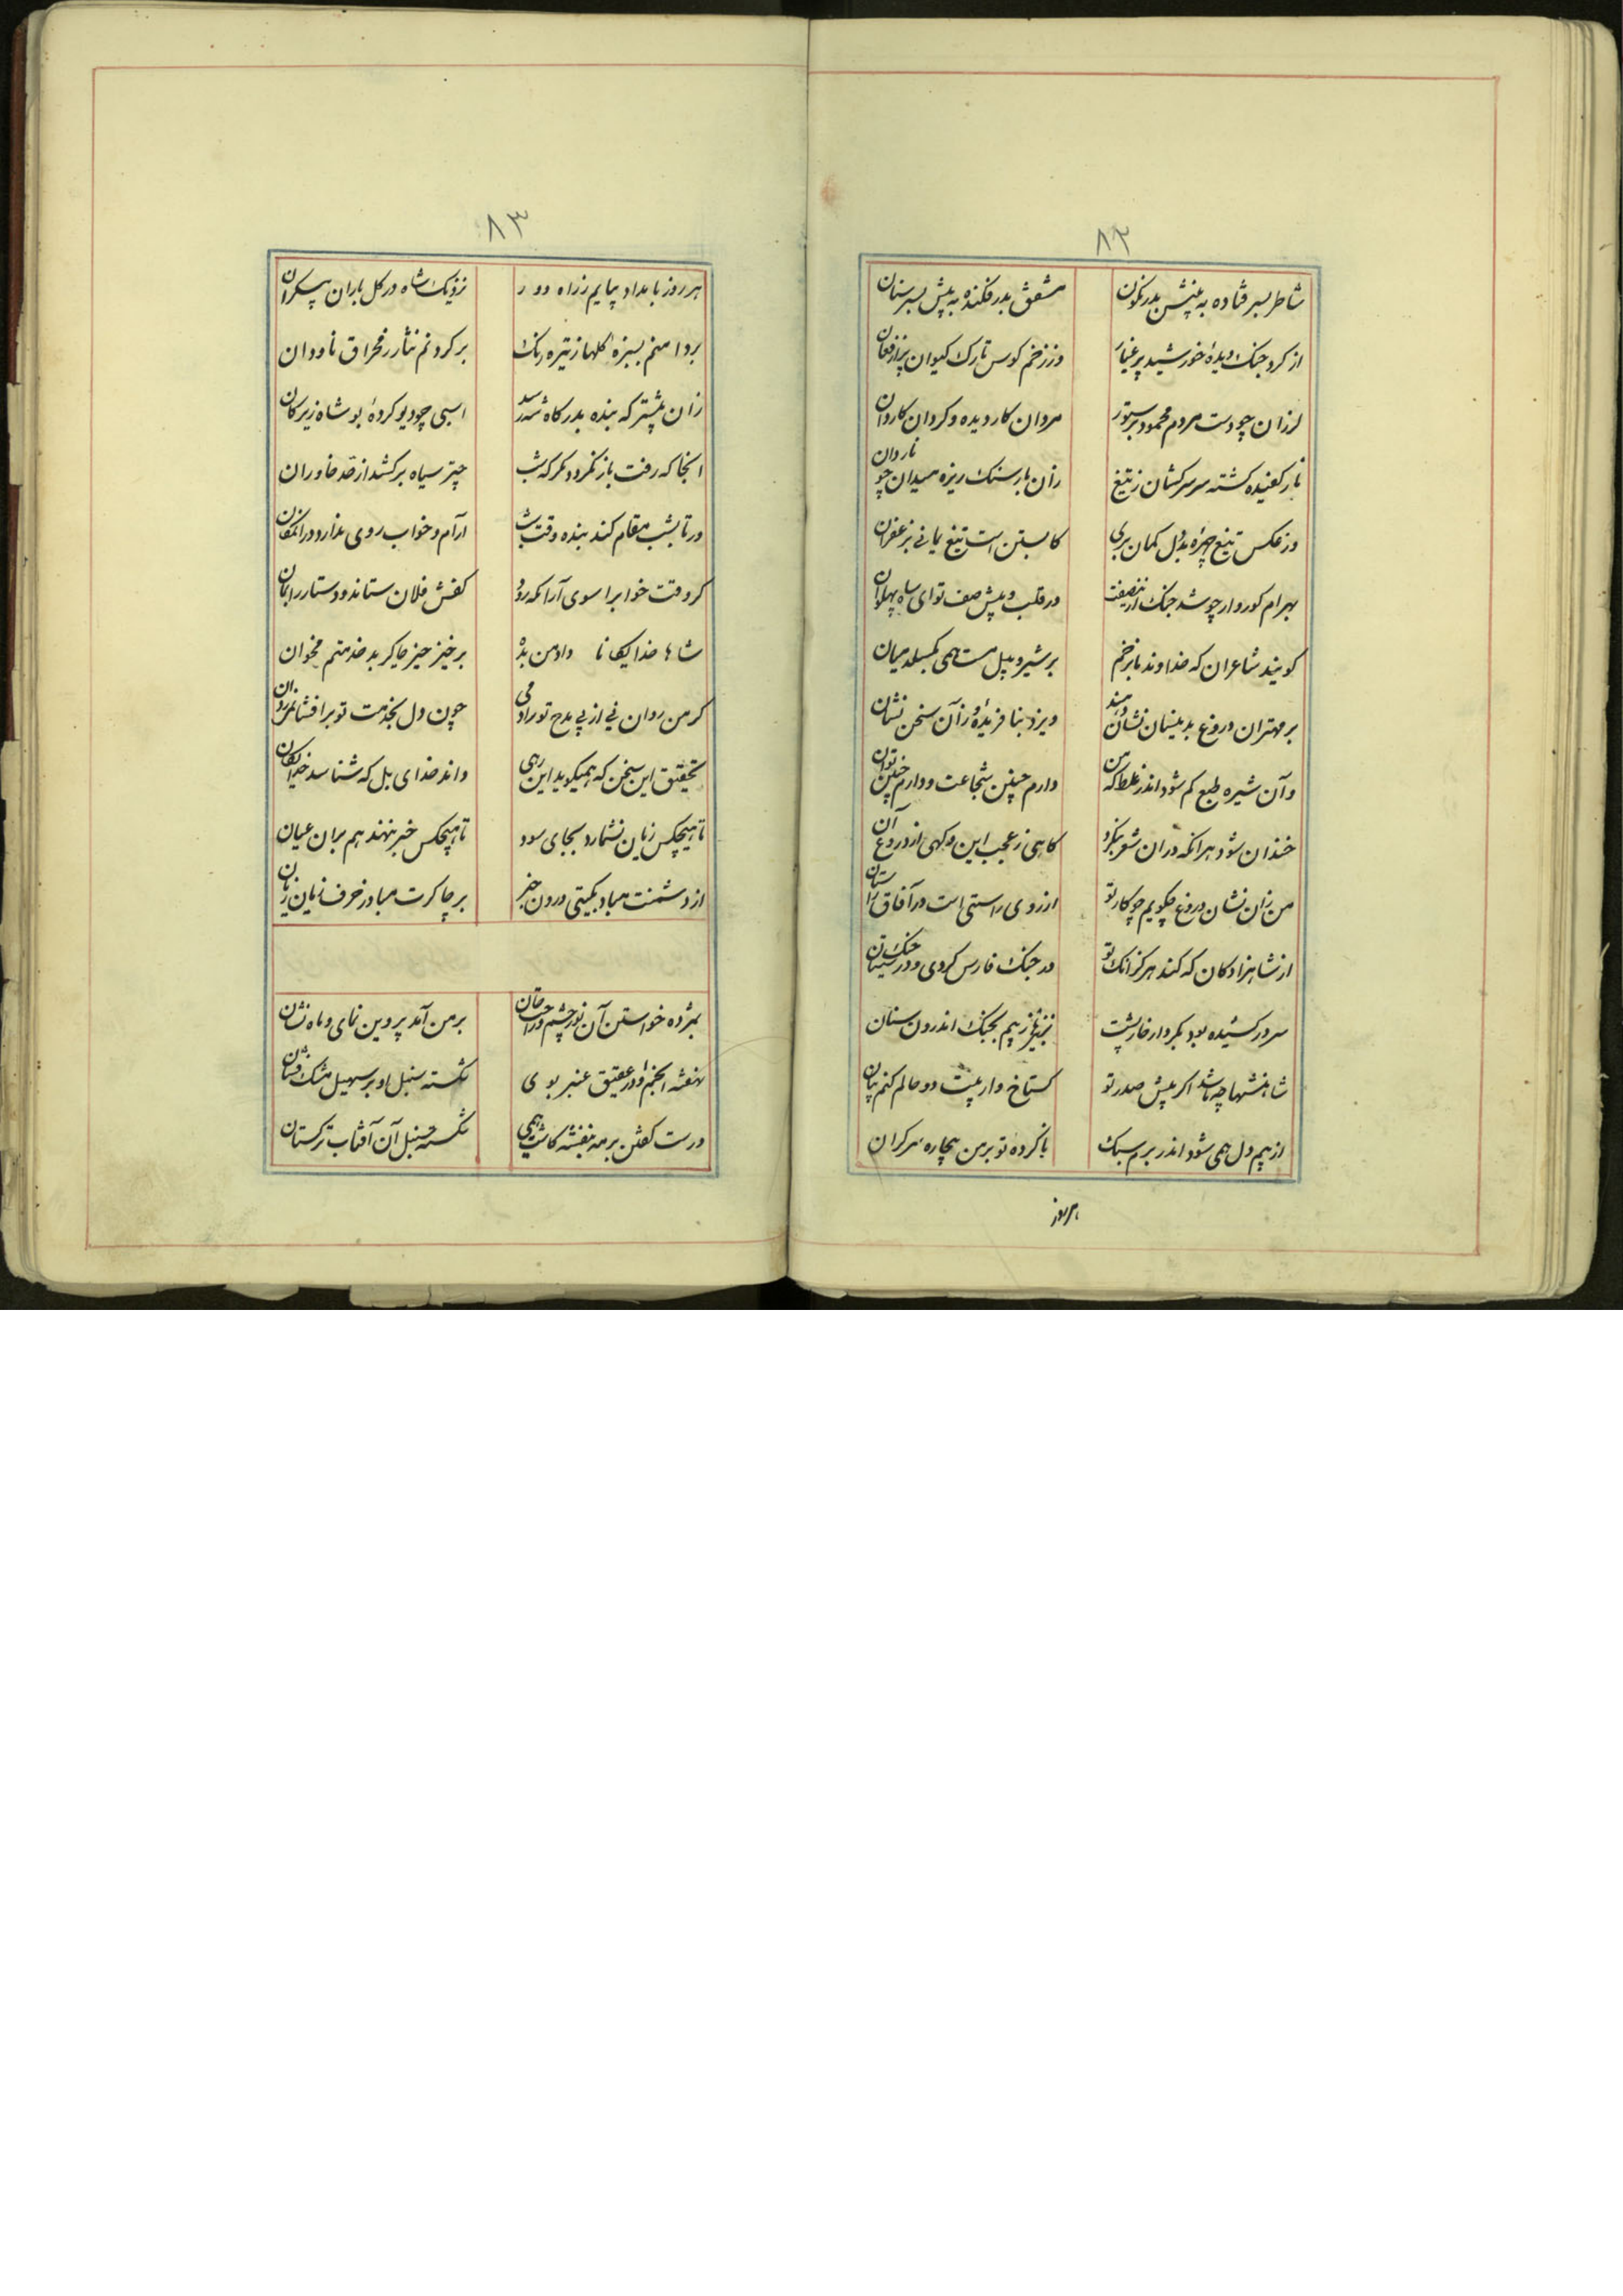 ۸۲
شاطر بسر فتاده به پیش پدر نکون مشفق پدر فکنده به پیش پسر سنان
از کرد جنک دیدهٔ خورشید پر غبار وز زخم کوس تارک کیوان پر از فغان
لرزان چو دست مردم محمود بر ستور مردان کار دیده و کردان کاردان
نار کفیده کشته سر سرکشان ز تیغ زان نار سنک ریزه میدان چو ناردان
وز عکس تیغ چهرهٔ بددل کمان بری کابستن است تیغ یمانی بزعفران
بهرام کوروار چو شد جنک در قلب و پیش صف تو ای شاه پهلوان
کویند شاعران که خداوند ما بزخم بر شیر و پیل مست همی بکسلد میان
بر مهتران دروغ بدینسان نشان دهند ویزد بنافریده وز آن سخن نشان
وآن شیره طبع کم شود اندر غلط که من دارم چنین شجاعت و دارم چنین توان
خندان شود هرانکه دران شعر بنکرد کاهی ز عجب این و کهی از دروغ آن
من زان نشان دروغ چکویم چو کار تو از روی راستی است در آفاق داستان
از شاهزادکان که کند هرکز انک تو در جنک فارس کردی و در جنک سیستان
سر در کشیده بود بکردار خارپشت نیز بیم بجنک اندرون سنان
شاهنشها چه باشد اکر پیش صدر تو کستاخ وار بیت دو حالم کنم بیان
از بیم دل همی شود اندر برم سبک ناکرده تو برمن بیچاره سر کران
هر روز
۸۳
هر روز بامداد بیایم ز راه دور نزدیک شاه در کل باران بیکران
بر دامنم بسبزه کلها ز تیره رنک بر کردنم نثار ز مخراق ناودان
زان پیشتر که بنده بدرکاه شه رسد اسبی چو دیو کرده بو شاه زیر کان
انجا که رفت باز نکردد مکر که شب چتر سیاه برکشد از قد خاوران
ور تا بشب مقام کند بنده وقت شب آرام و خواب روی ندارد در انمکان
کر وقت خواب را سوی آرامکه رود کفش فلان ستاند و دستار را بکان
شاها خدایکانا داد من بده برخیز خیز چاکر بد خدمتم مخوان
کر من روان نی از پی مدح تو رادمی چون دل بخدمت تو برافشانمی روان
تحقیق این سخن که همیکوید این رهی داند خدای بل که شناسد خدایکان
تا هیچکس زیان نشمارد بجای سود تا هیچکس خبر ننهند هم بران عیان
از دشمنت مباد بکیتی درون خبر بر چاکرت مباد ز حرف زیان زیان
بمژده خواستن آن نور چشم و راحت جان بر من آمد پروین نمای و ماه نشان
نهفته انجم او در عقیق عنبر بوی شکسته سنبل او بر سهیل مشک فشان
درست کفتی بر مه بنفشه کاشت همی شکسته سنبل آن آفتاب ترکستان